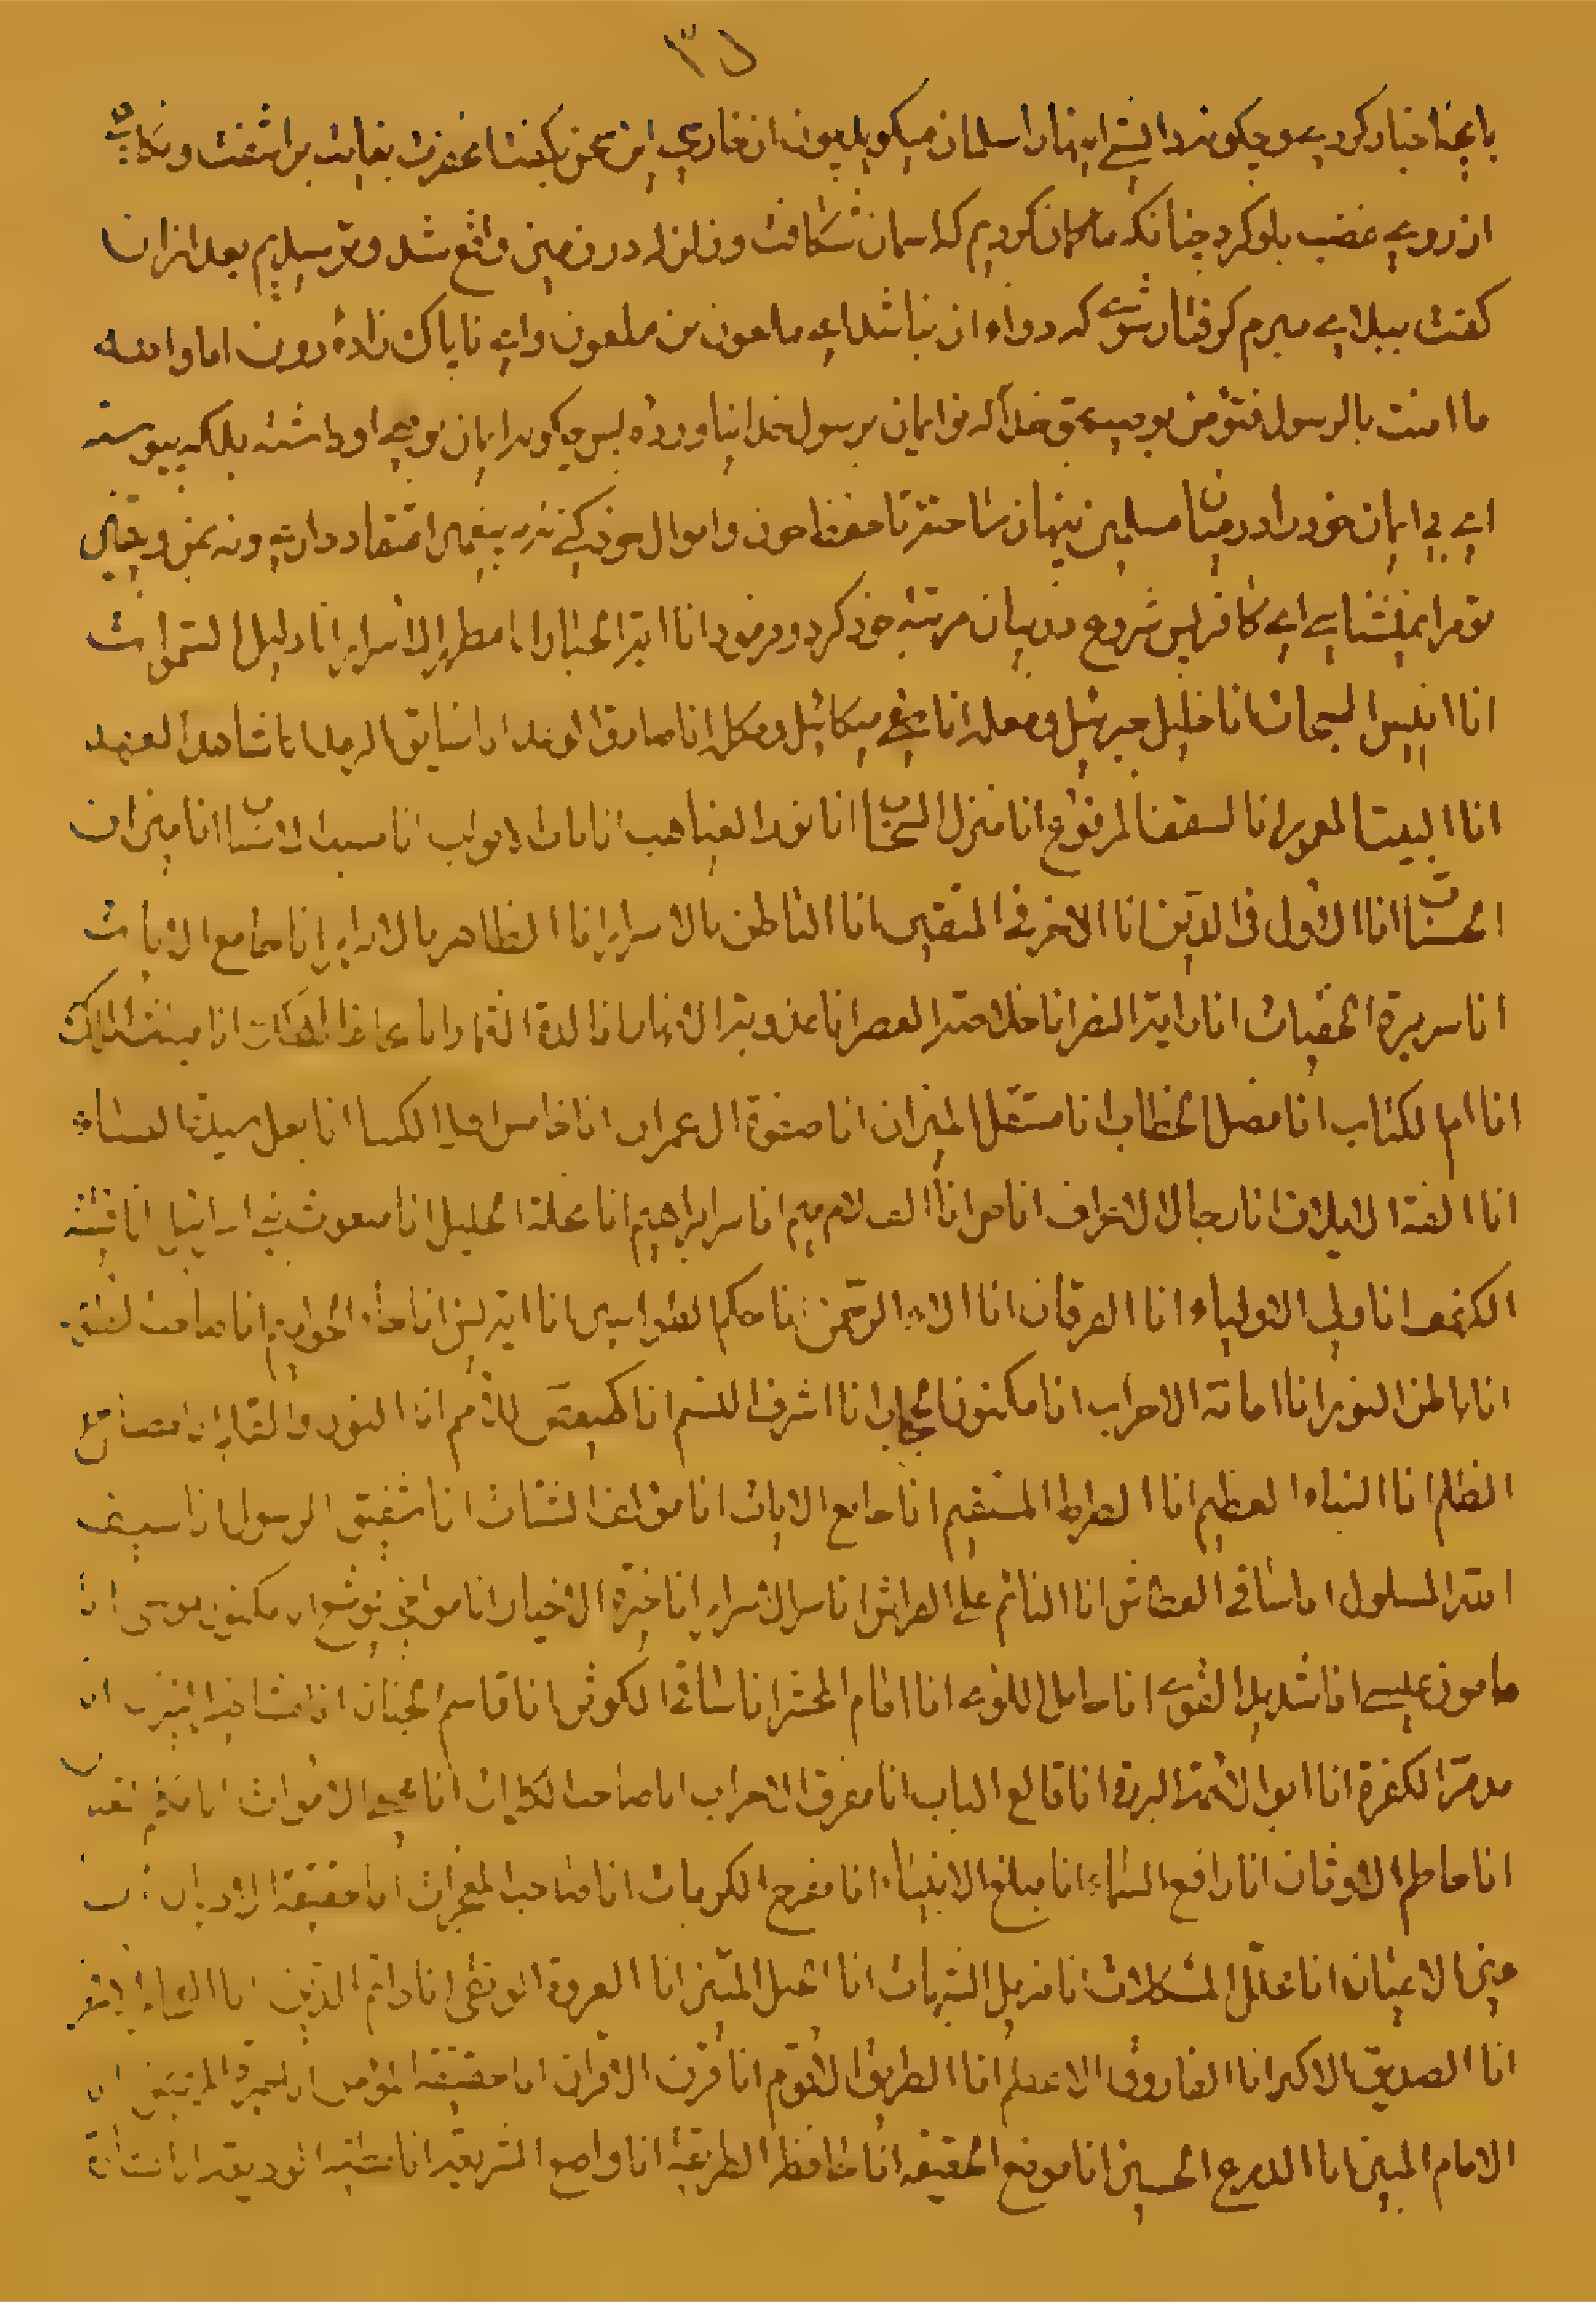 ۳۵
با اینها خبار کردی و چکونه دانستی اینها را سلمان میکوید چون ان غازی این سخن بکفت انحضرت بغایت براشفت و نکاهی
از روی غضب باو کرد چنانکه ما کمان کردیم که اسمان شکافت و زلزله در زمین واقع شد و ترسیدیم بعد از ان
کفت ببلای مبرم کرفتار شوی که دوای ان نباشد ای ملعون بن ملعون و ای ناپاک زاده دون اما والله
ما امنت بالرسول فتؤمن بوصیه بحق خدا که تو ایمان برسول خدا نیاورده پس چکونه ایمان بوصی او داشته بلکه پیوسته
ای بی ایمان خود را در میان مسلمین پنهان ساخته تا حفظ خون و اموال خود کنی نه به پیغمبر اعتقاد داری و نه بمن و یقین
تو مرا نمیشناسی ای کافر پس شروع در بیان مرتبه خود کرد و فرمود انا ایة الجبار انا مطهر الاسرار انا دلیل السموات
انا انیس السبحات انا خلیل جبرئیل و معلمه انا صفی میکائیل و مکلمه انا صادق الوعد انا سایق الرعد انا شاهد العهد
انا البیت المعمور انا السقف المرفوع انا منزل السحاب انا نور الغیاهب انا باب الابواب انا مسبب الاسباب انا میزان
الحسنات انا الاول فی الدین انا الاخر فی المتقین انا الباطن بالاسرار انا الظاهر بالانوار انا جامع الایات
انا سریرة الخفیات انا رایة النصر انا خلاصة العصر انا عذوبة الانهار انا لذة الثمار انا
انا ام الکتاب انا فصل الخطاب انا مستقل المیزان انا صفوة ال عمران انا خامس اهل الکسا انا بعل سیدة النساء
انا الفة الایلاف انا رجال الاعراف انا ص انا الف لام میم انا سر ابراهیم انا محلة الخلیل انا مبعوث بنی اسرائیل انا فتنة
الکهف انا ولی الاولیاء انا الفرقان انا الاء الرحمن انا حکم الطواسین انا ال یس انا حاء الحوامیم انا صاحب
انا باطن النور انا اماتة الاحزاب انا مکنون الحجاب انا اشرف النسم انا کهیعص للامم انا النور والنار انا مصباح
الظلم انا النباء العظیم انا الصراط المستقیم انا جامع الایات انا مؤلف الشتات انا شفیق الرسول انا سیف
الله المسلول انا ساقی العطاش انا النائم علی الفراش انا سر الاسرار انا خیرة الاخیار انا یوشع انا مکنون موسی انا
مامون عیسی انا شدید القوی انا حامل اللوی انا امام المحشر انا ساقی الکوثر انا قاسم الجنان انا انا
مدمرة الکفرة انا ابوالائمة البررة انا قالع الباب انا مفرق الاحزاب انا صاحب انا محیی الاموات انا
انا حاطم الاوثان انا رافع السماء انا مبلغ الانبیاء انا مفرج الکربات انا صاحب المعجزات انا حقیقة الادیان انا
عین الاعیان انا حلال المشکلات انا مزیل الشبهات انا الحبل المتین انا العروة الوثقی انا دائم الدین
انا الصدیق الاکبر انا الفاروق الاعظم انا الطریق الاقوم انا قرن الاقران انا حقیقة المؤمن انا
الامام المبین انا الدرع الحصین انا موضع الحقیقه انا حافظ الطریقه انا واضع الشریعه انا